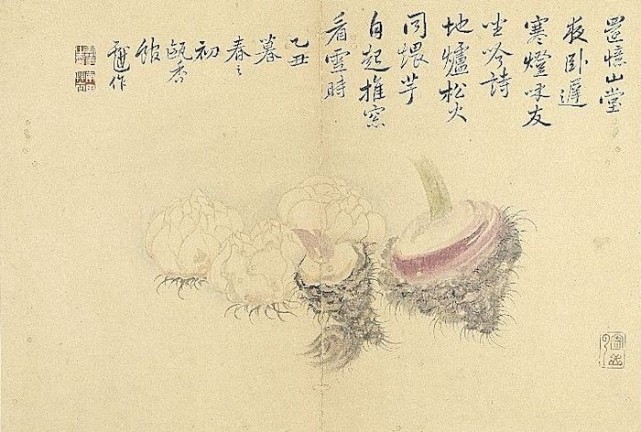 憶山堂
夜卧遲
寒燈呼友
坐吟詩
地爐松火
同煨芋
自起推窓
看雪時
乙丑
暮
春之
初
甌香
館
作